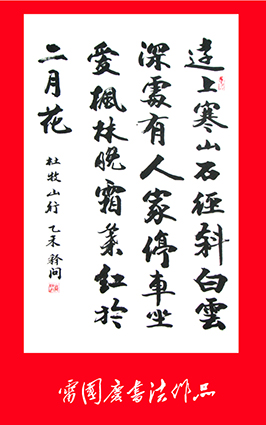 遠上寒山石徑斜白雲
深處有人家停車坐
愛楓林晚霜葉紅於
二月花
杜牧山行 乙未
雷國慶書法作品